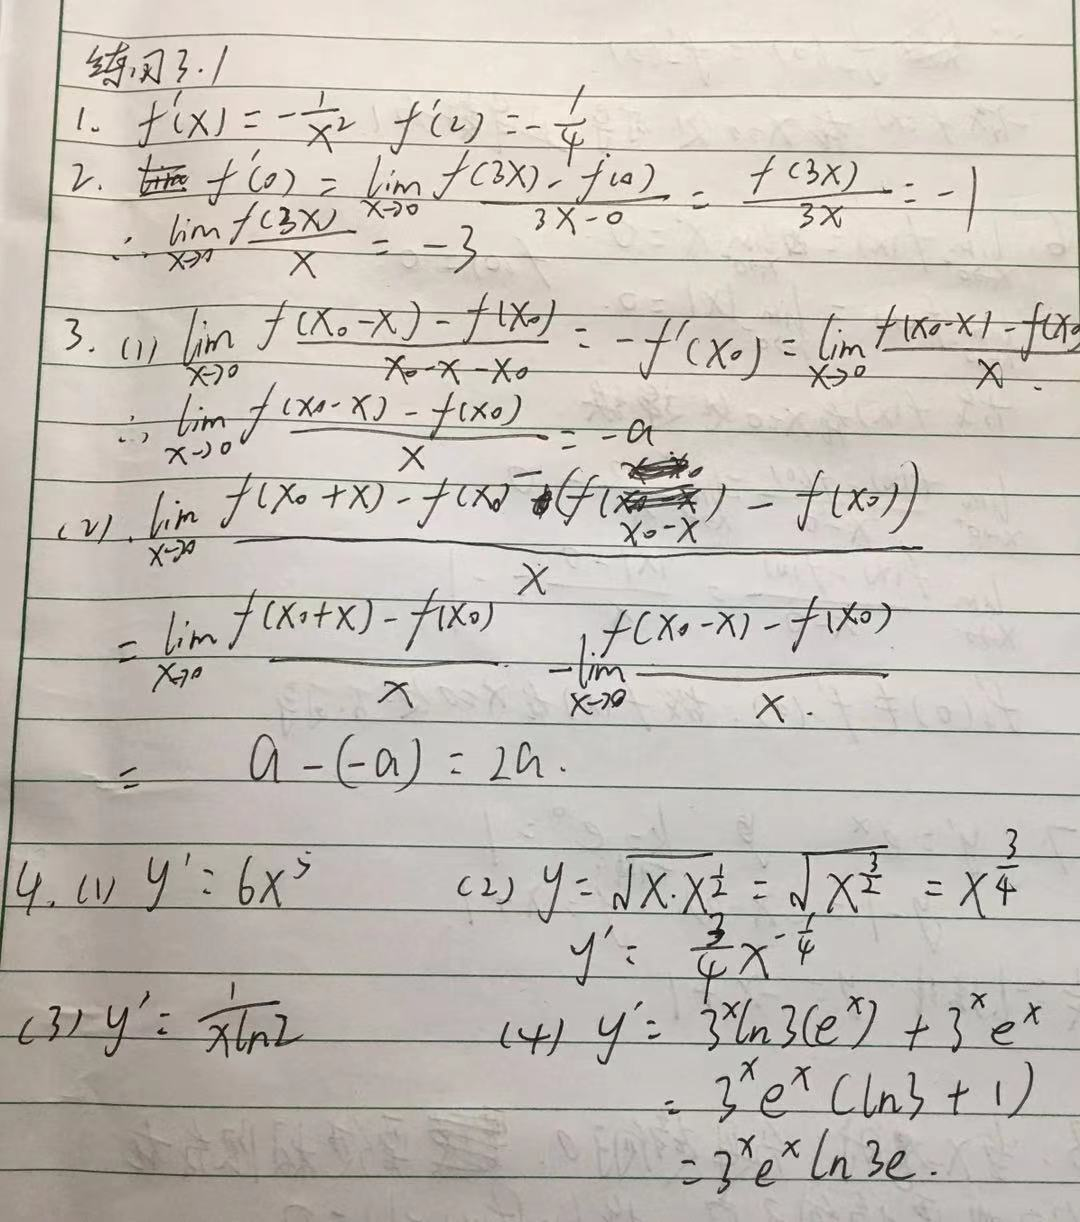 练习3.1
1. f'(x) = -1/x² f'(2) = -1/4
2. f'(0) = lim x→0 (f(3x) - f(0))/(3x-0) = f(3x)/3x = -1
∴ lim x→0 f(3x)/x = -3
3. (1) lim x→0 (f(x₀-x) - f(x₀))/(x₀-x-x₀) = -f'(x₀) = lim x→0 (f(x₀-x) - f(x₀))/x.
∴ lim x→0 (f(x₀-x) - f(x₀))/x = -a
(2). lim x→0 (f(x₀+x) - f(x₀) - (f(x₀-x) - f(x₀)))/x
= lim x→0 (f(x₀+x) - f(x₀))/x - lim x→0 (f(x₀-x) - f(x₀))/x.
= a - (-a) = 2a.
4. (1) y' = 6x⁵ (2) y = √(x·x^(1/2)) = √(x^(3/2)) = x^(3/4)
y' = 3/4 x^(-1/4)
(3) y' = 1/(xln2) (4) y' = 3ˣln3(eˣ) + 3ˣeˣ
= 3ˣeˣ(ln3 + 1)
= 3ˣeˣln3e.